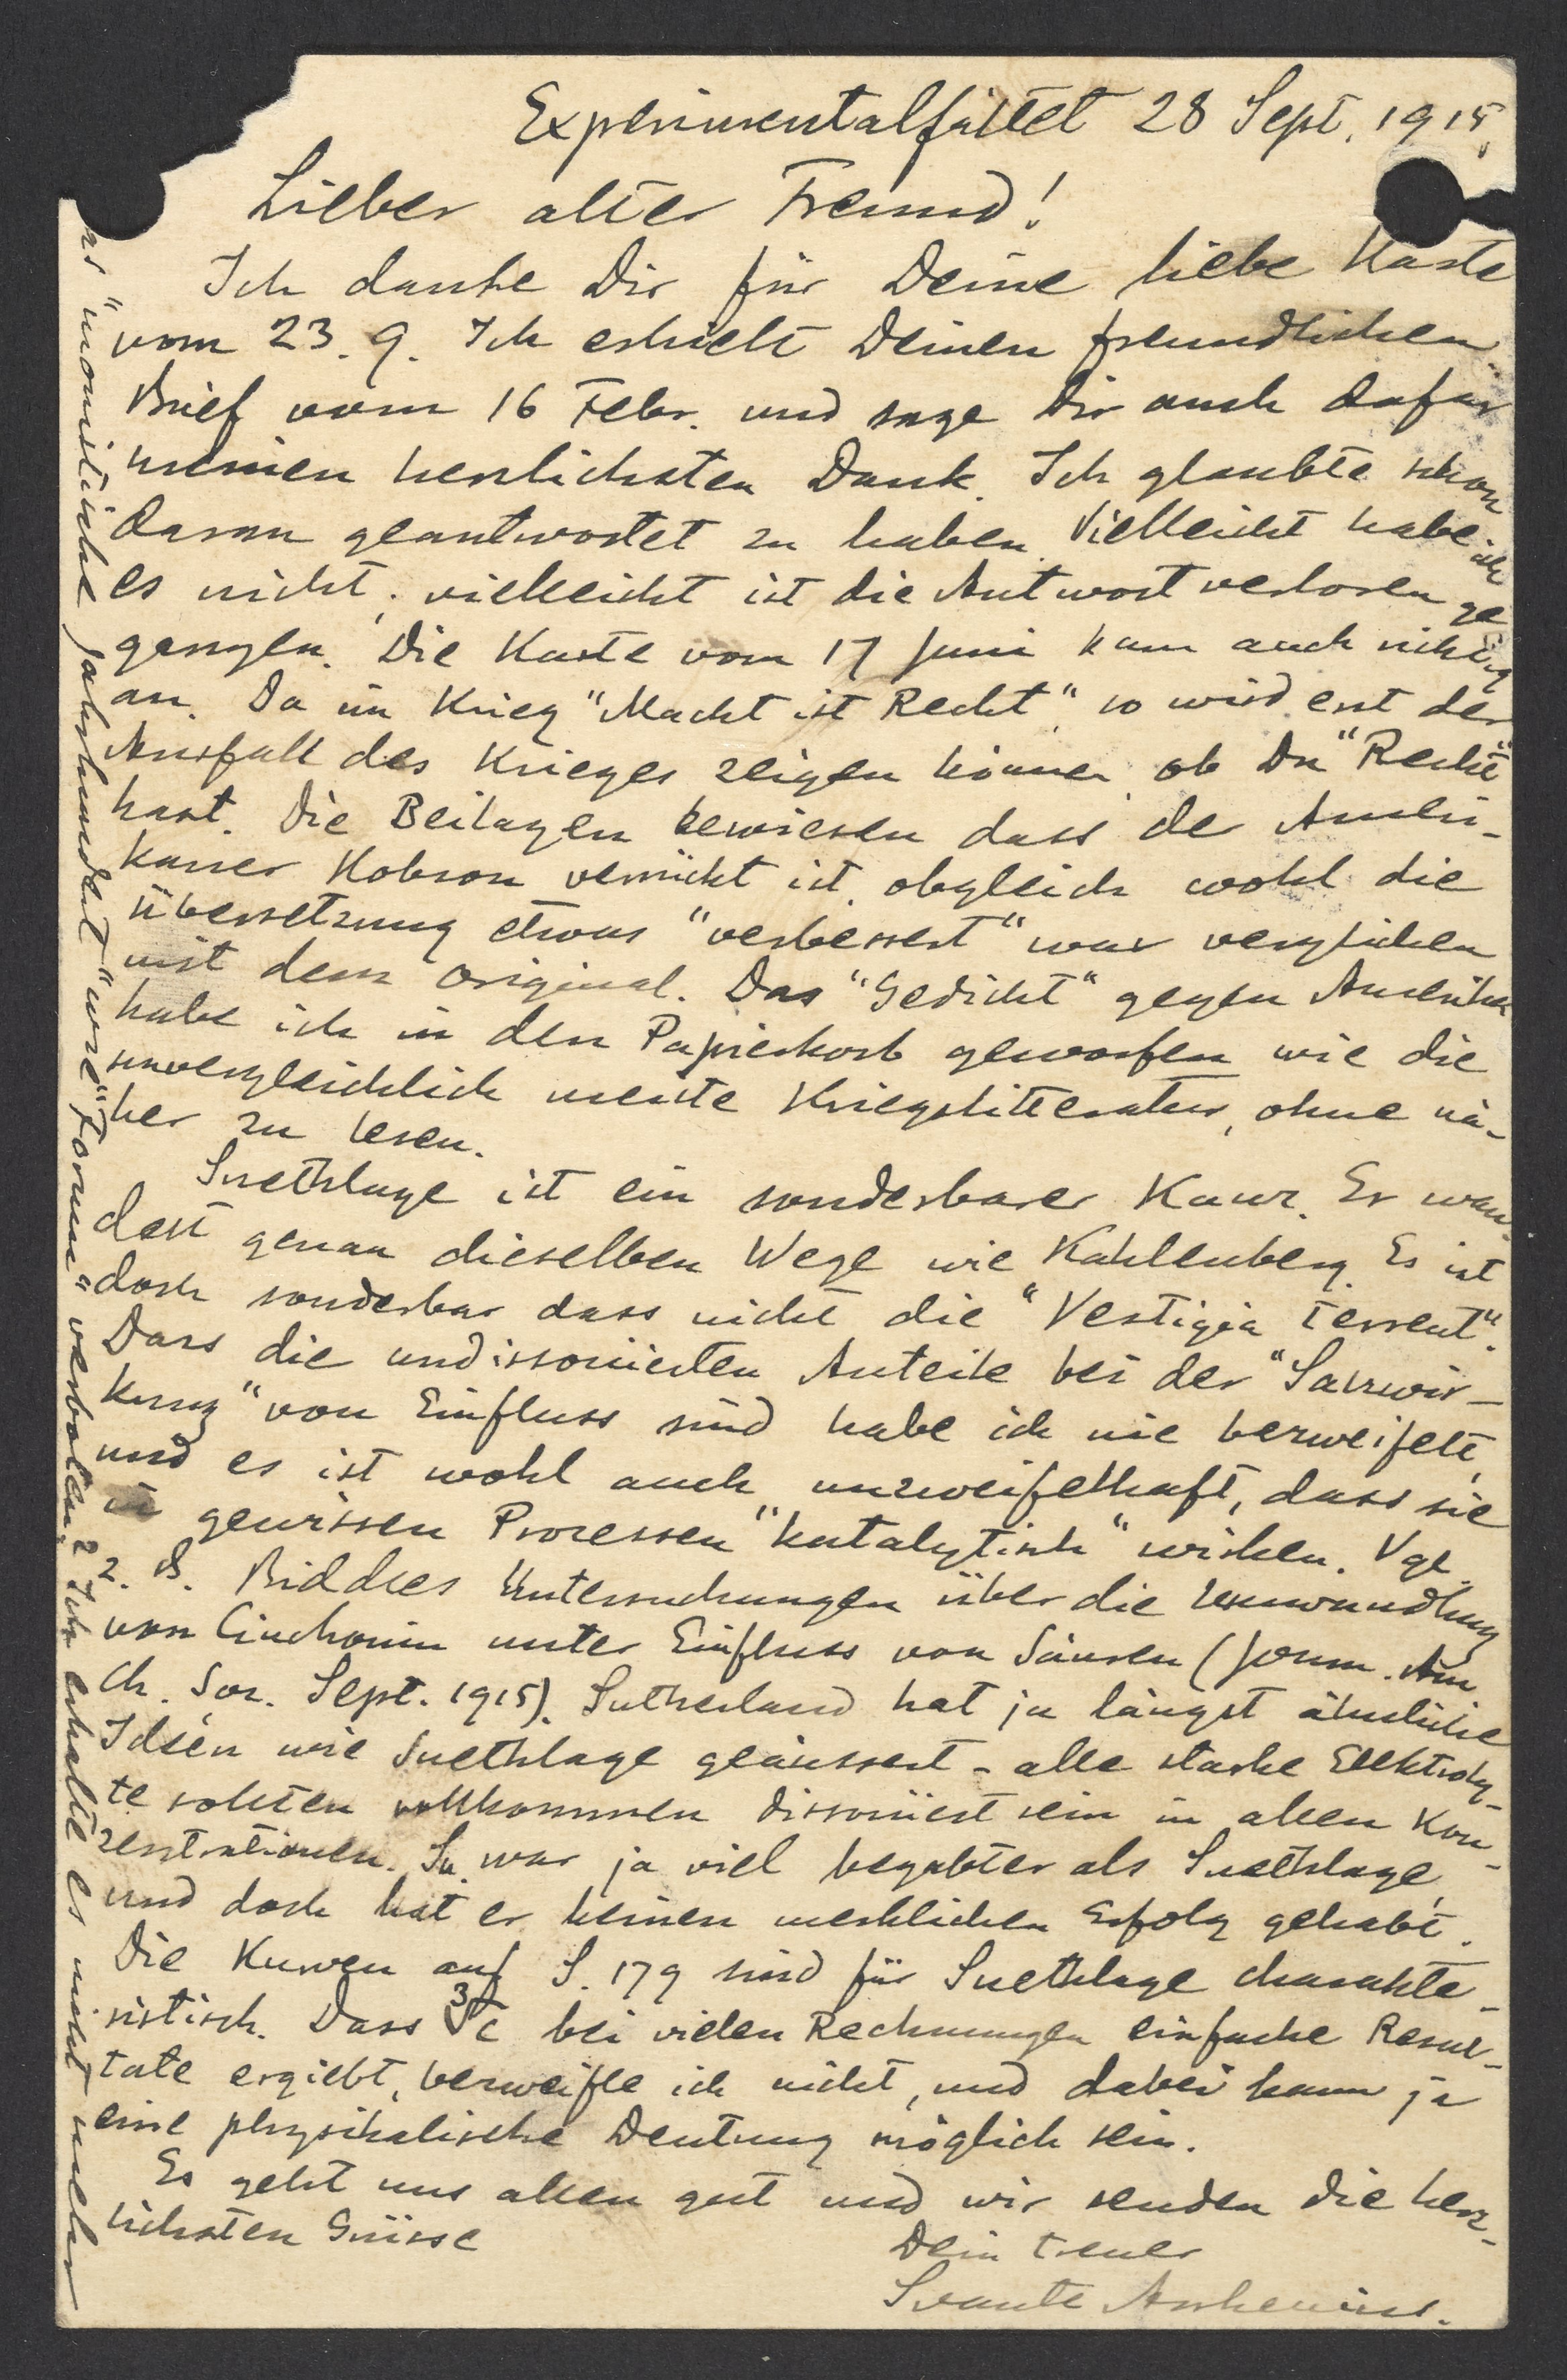 Experimentalfältet 28 Sept. 1915.
Lieber alter Freund!
Ich danke Dir für Deine liebe Karte
vom 23. 9. Ich erhielt Deinen freundlichen
Brief vom 16 Febr. und sage Dir auch dafür
meinen herzlichsten Dank. Ich glaubte schon
daran geantwortet zu haben. Vielleicht habe ich
es nicht, vielleicht ist die Antwort verloren ge
gangen. Die Karte vom 17 Juni kam auch richtig
an. Da im Krieg "Macht ist Recht" so wird erst der
Ausfall des Krieges zeigen können ob Du "Recht"
hast. Die Beilagen beweisen dass der Ameri-
kaner Hobson verrückt ist, obgleich wohl die
Übersetzung etwas "verbessert" war verglichen
mit dem Original. Das "Gedicht" gegen Amerika
habe ich in den Papierkorb geworfen wie die
unvergleichlich meiste Kriegslitteratur, ohne nä-
her zu lesen.
Snethlage ist ein sonderbarer Kauz. Er wan-
dert genau dieselben Wege wie Kahlenberg. Es ist
doch sonderbar dass nicht die "Vestigia terrent".
Dass die undissociierten Anteile bei der "Salzwir-
kung" von Einfluss sind habe ich nie bezweifelt,
und es ist wohl auch unzweifelhaft, dass sie
in gewissen Processen "katalytisch" wirken. Vgl.
z. B. Biddles Untersuchungen über die Umwandlung
von Cinchonin unter Einfluss von Säuren (Journ. Am
Ch. Soc. Sept. 1915). Sutherland hat ja längst ähnliche
Idéen wie Snethlage geäussert - alle starke Elektroly-
te sollten vollkommen dissociiert sein in allen Kon-
zentrationen. Su. war ja viel begabter als Snethlage,
und doch hat er keinen merklichen Erfolg gehabt.
Die Kurven auf S. 179 sind für Snethlage charakte-
ristisch. Dass ³√c bei vielen Rechnungen einfache Resul-
tate ergiebt, bezweifle ich nicht, und dabei kann ja
eine physikalische Deutung möglich sein.
Es geht uns allen gut und wir senden die herz-
lichsten Grüsse
Dein treuer
Svante Arrhenius.
"monistische Jahrhundert" wie "Forum" verboten? Ich erhalte es nicht mehr